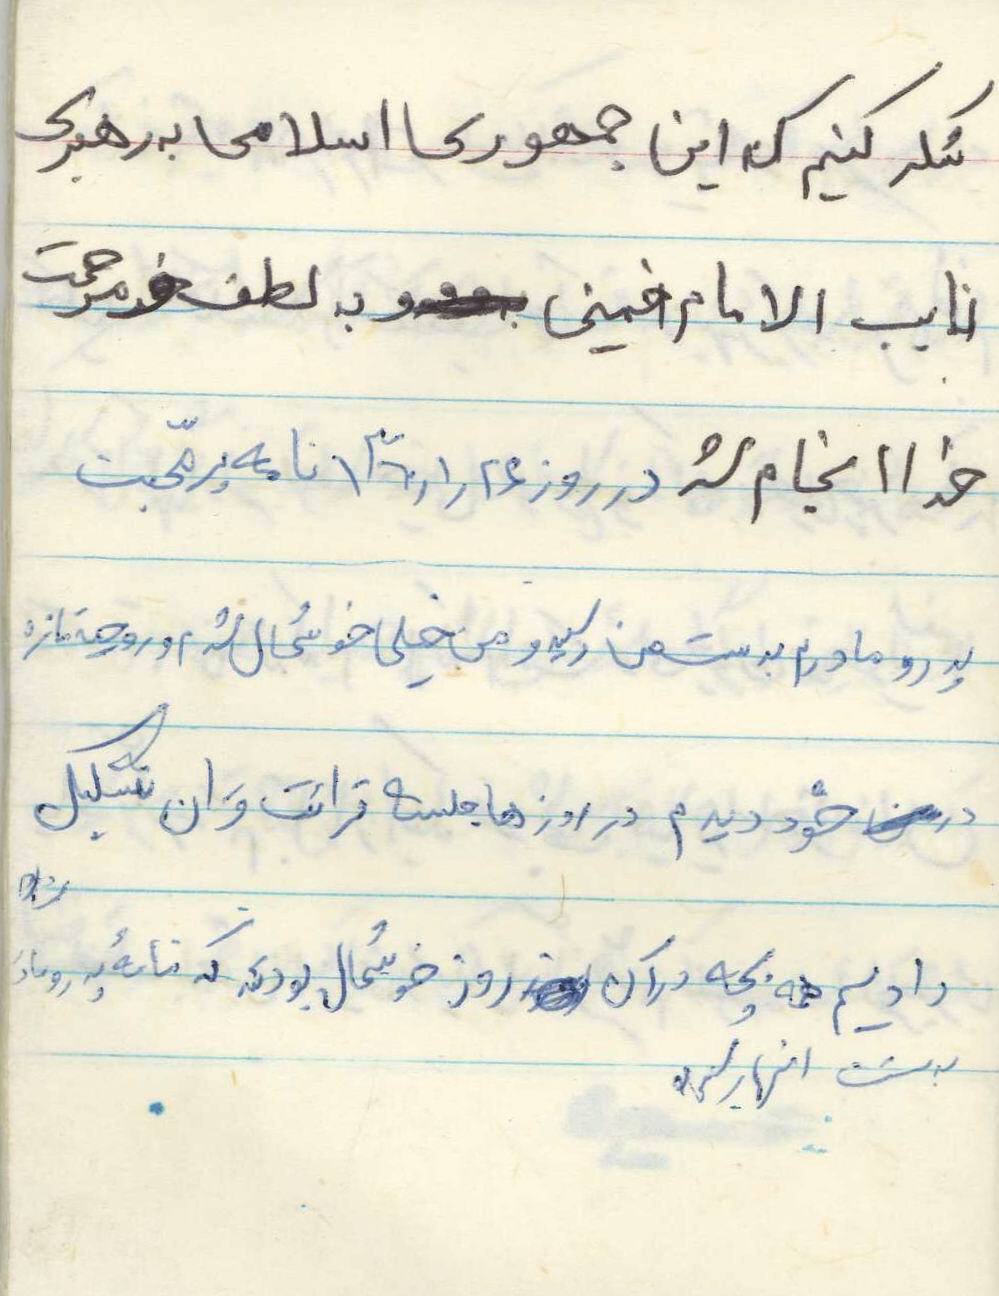 شکر کنیم که این جمهوری اسلامی به رهبری
نایب الامام خمینی و به لطف و مرحمت
خدا انجام شد در روز ۱۳۶۰/۱/۲۶ نامه پر محبت
پدر و مادرم بدست من رسید و من خیلی خوشحال شدم و روحیه تازه
در خود دیدم در روزها جلسه قرائت قران تشکیل
دادیم همه بچه در آن روز خوشحال بودند که نامه پدر و مادر
بدست انها رسیده